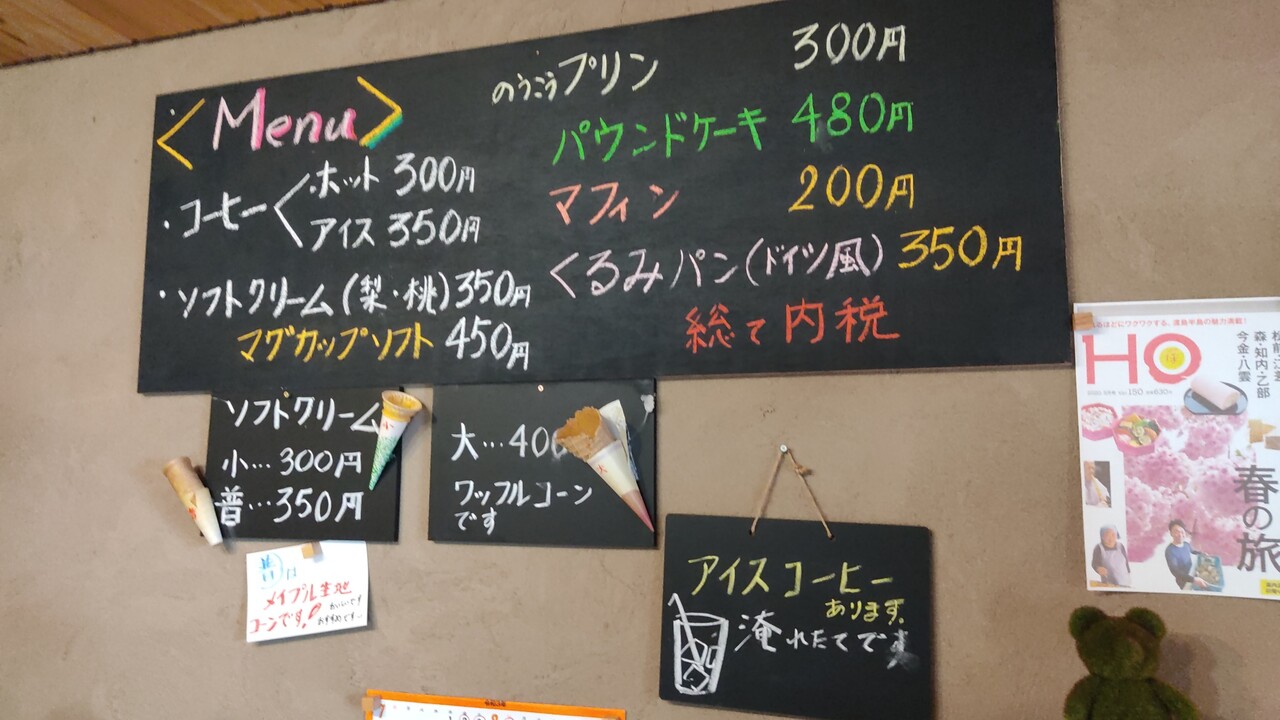 <Menu>
・コーヒー<・ホット 300円
アイス 350円
・ソフトクリーム(梨・桃)350円
マグカップソフト 450円
のうこうプリン 300円
パウンドケーキ 480円
マフィン 200円
くるみパン(ドイツ風) 350円
総て内税
ソフトクリーム
小…300円
普…350円
大…400
ワッフルコーン
です
普は
メイプル生地
コーンです!
おすすめです
アイスコーヒー
あります。
淹れたてです
るほどにワクワクする、渡島半島の魅力満載!
HO
ほ
150
森・知内・乙部
今金・八雲
春の旅